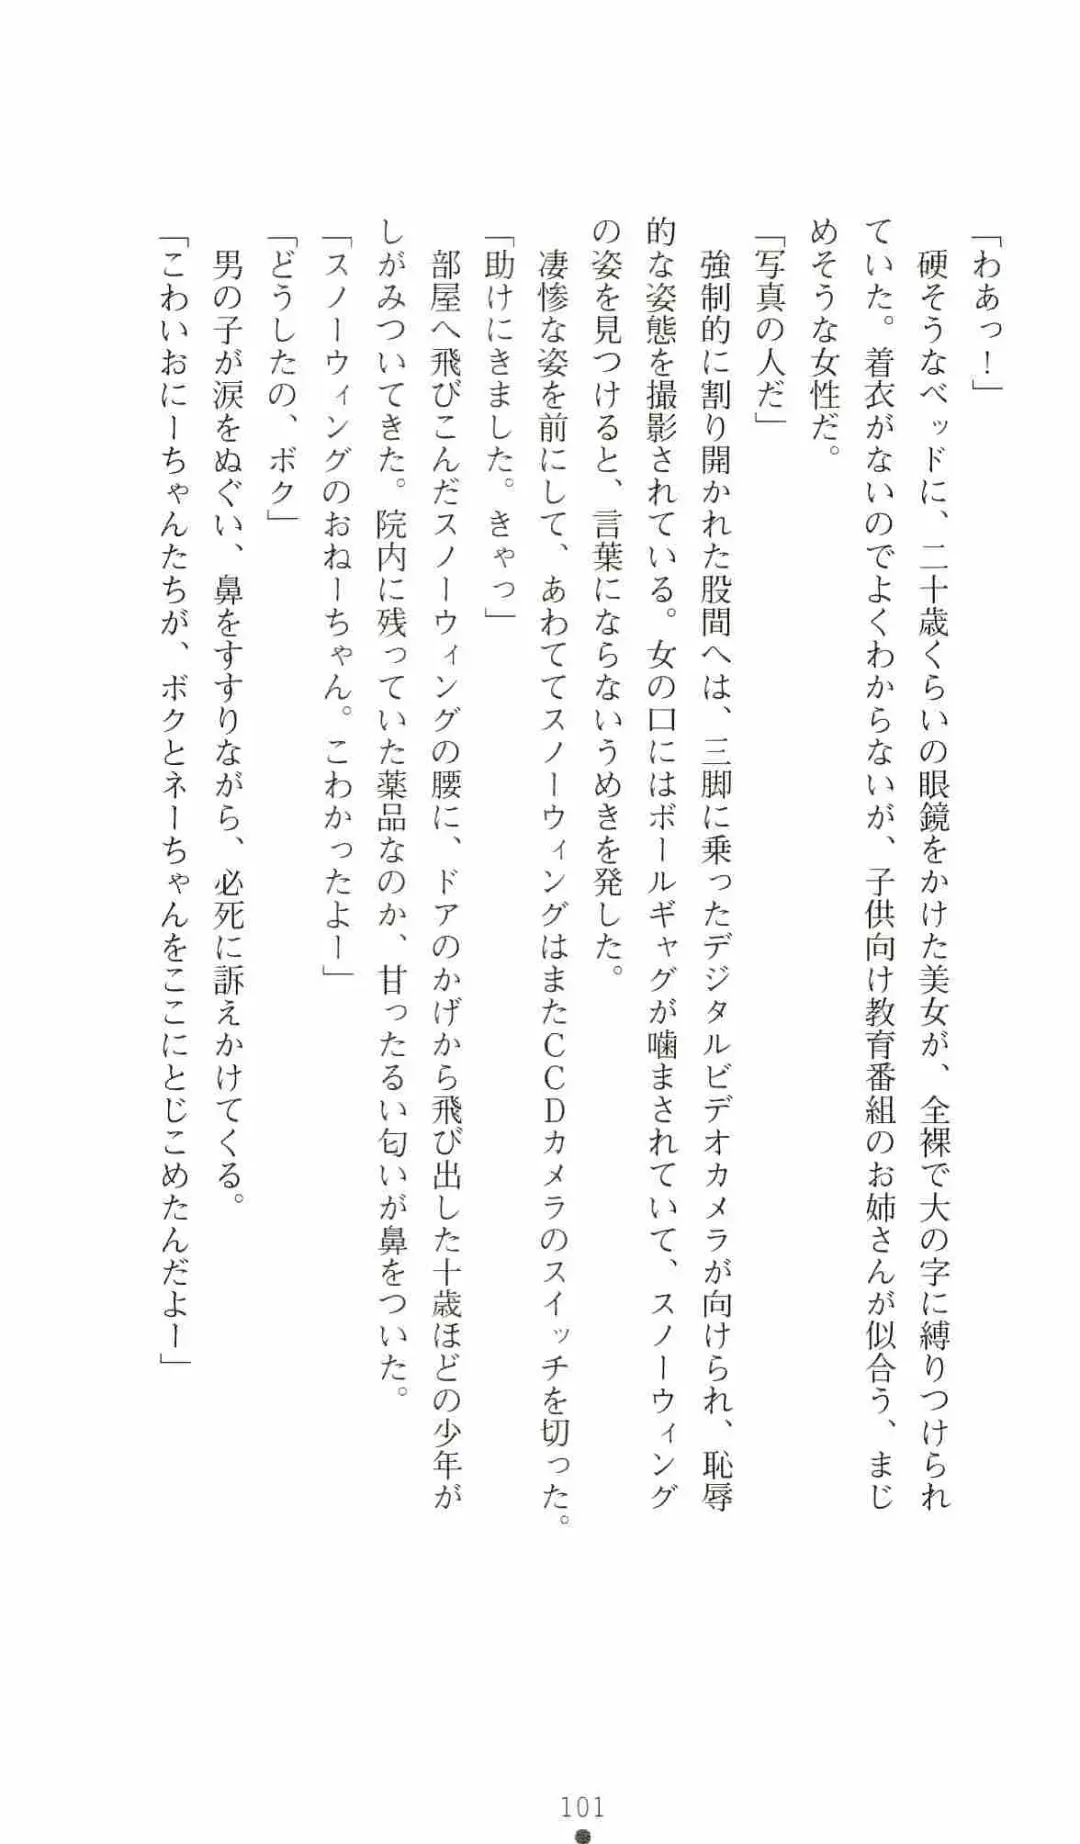 「わあっ！」
　硬そうなベッドに、二十歳くらいの眼鏡をかけた美女が、全裸で大の字に縛りつけられ
ていた。着衣がないのでよくわからないが、子供向け教育番組のお姉さんが似合う、まじ
めそうな女性だ。
「写真の人だ」
　強制的に割り開かれた股間へは、三脚に乗ったデジタルビデオカメラが向けられ、恥辱
的な姿態を撮影されている。女の口にはボールギャグが噛まされていて、スノーウィング
の姿を見つけると、言葉にならないうめきを発した。
　凄惨な姿を前にして、あわててスノーウィングはまたＣＣＤカメラのスイッチを切った。
「助けにきました。きゃっ」
　部屋へ飛びこんだスノーウィングの腰に、ドアのかげから飛び出した十歳ほどの少年が
しがみついてきた。院内に残っていた薬品なのか、甘ったるい匂いが鼻をついた。
「スノーウィングのおねーちゃん。こわかったよー」
「どうしたの、ボク」
　男の子が涙をぬぐい、鼻をすすりながら、必死に訴えかけてくる。
「こわいおにーちゃんたちが、ボクとネーちゃんをここにとじこめたんだよー」
101